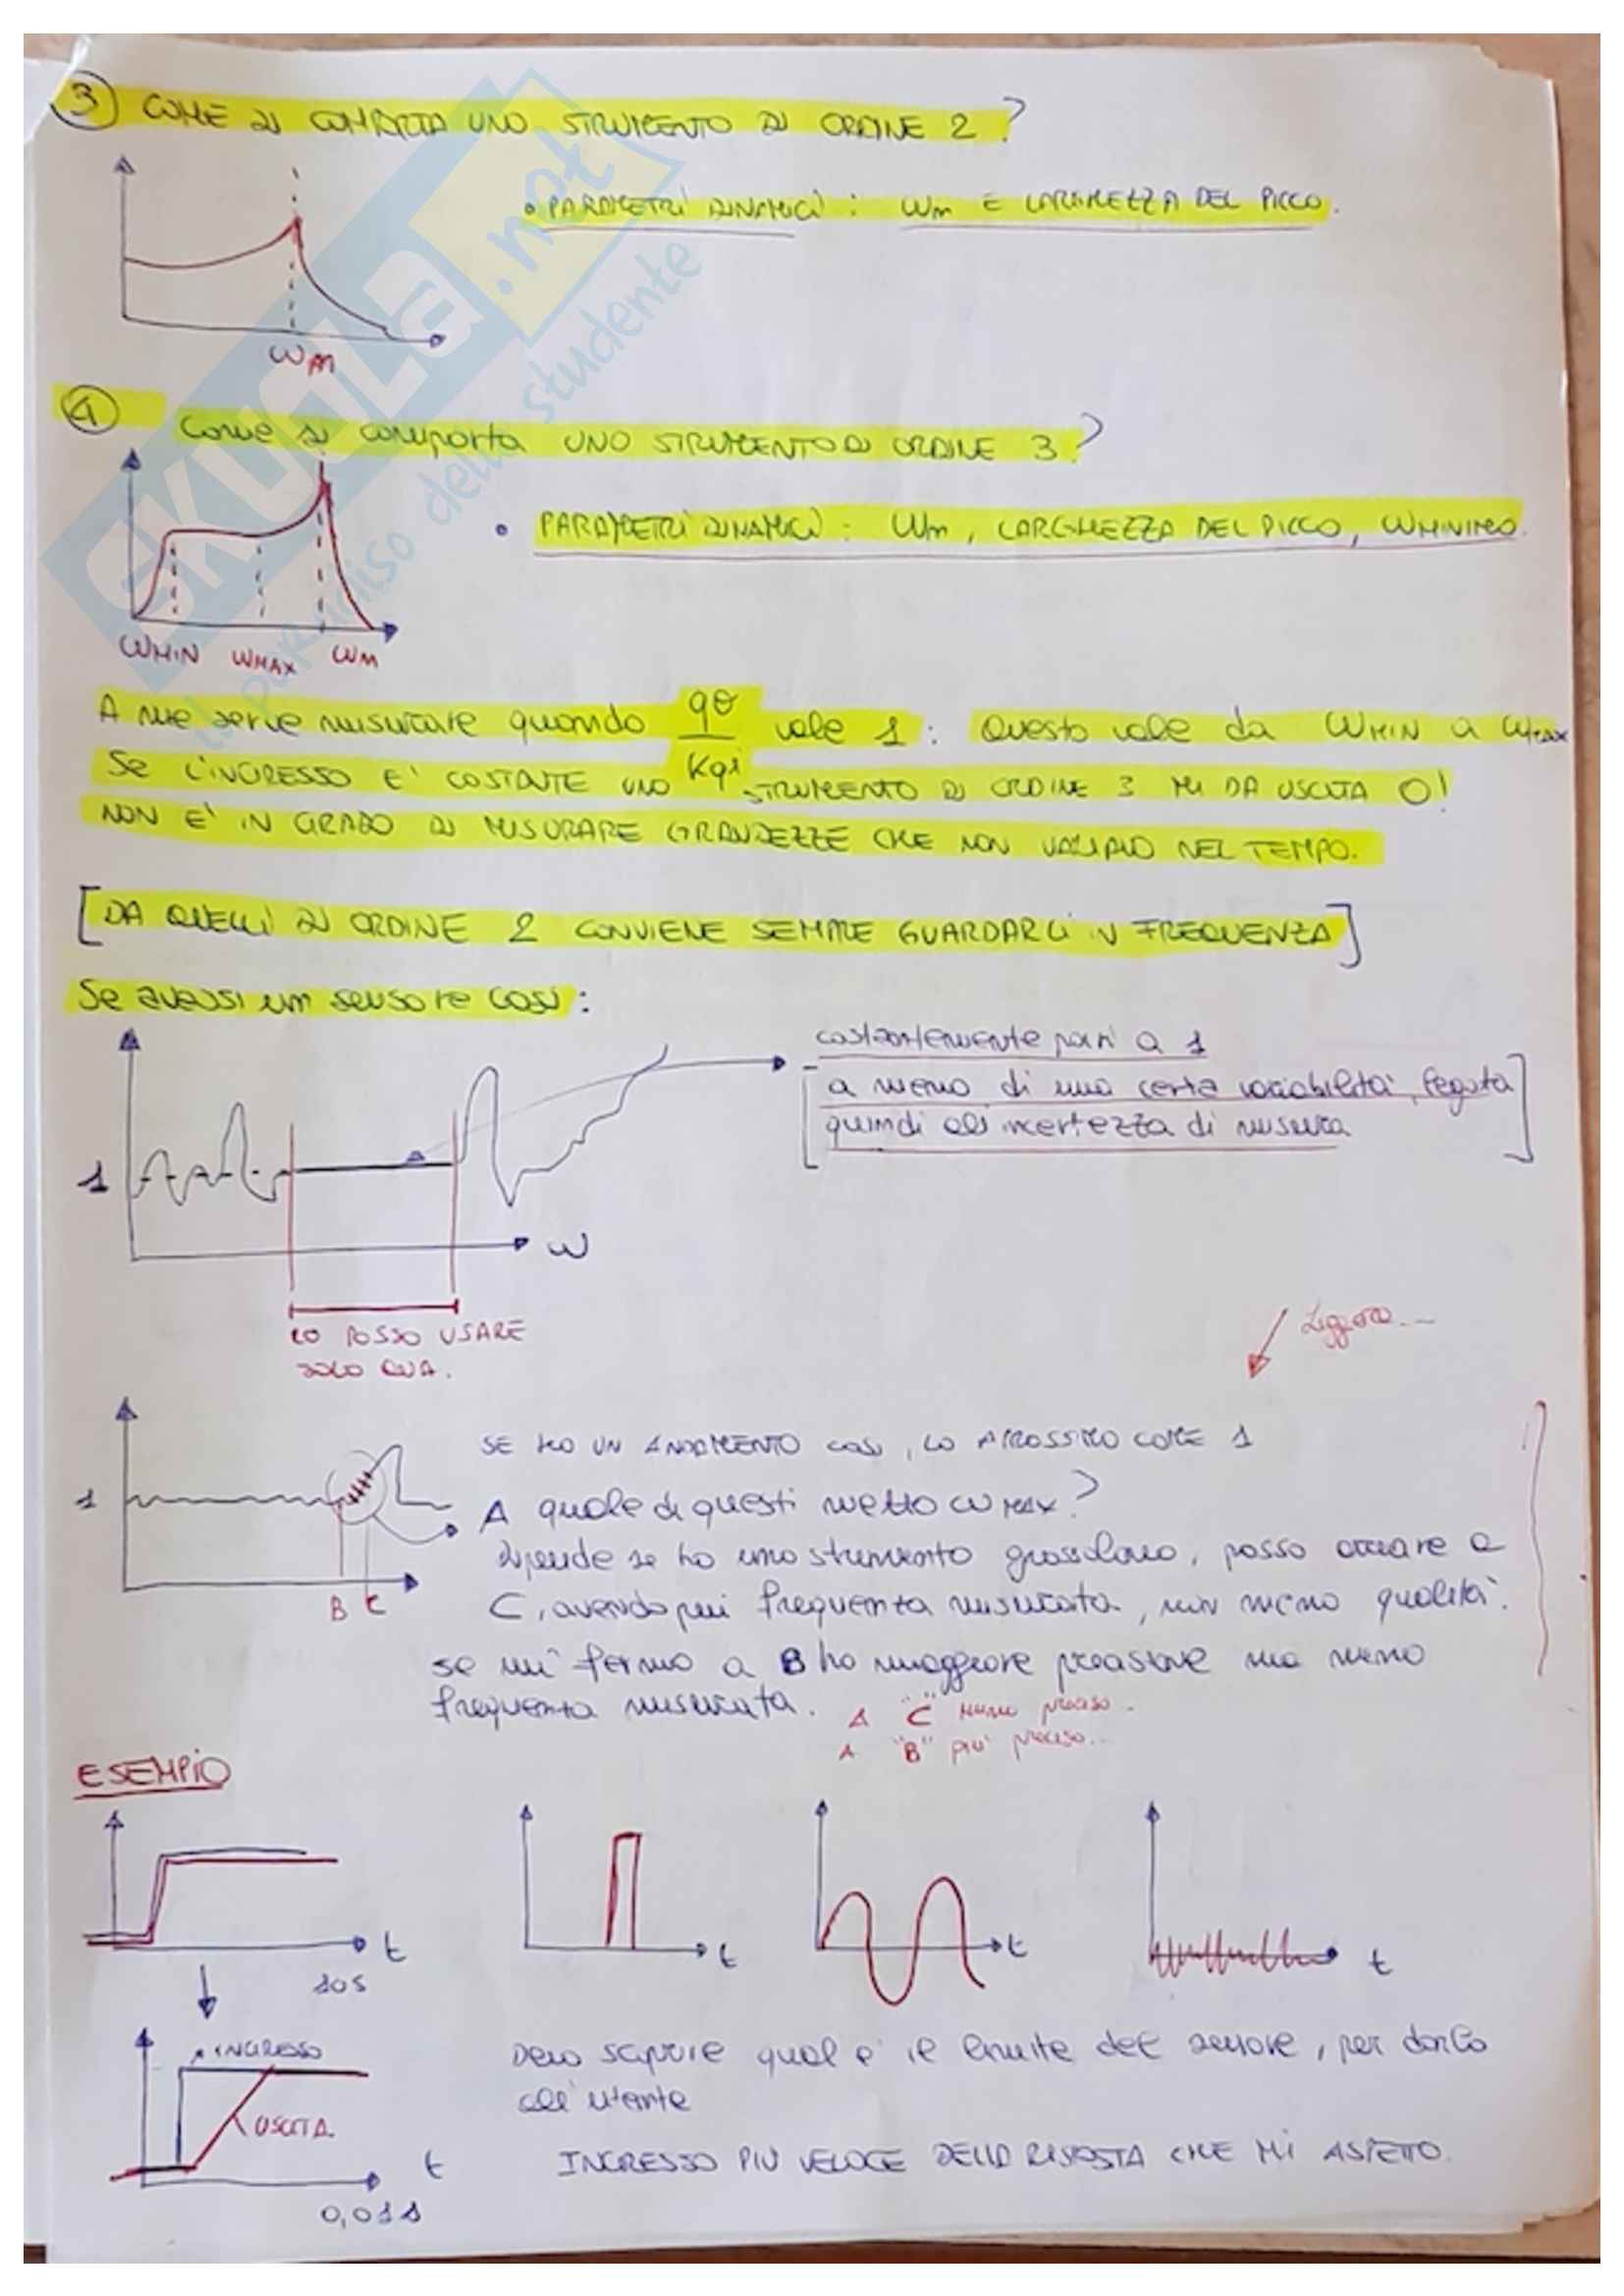 3) COME SI COMPORTA UNO STRUMENTO DI ORDINE 2?
• PARAMETRI DINAMICI: Wm E LARGHEZZA DEL PICCO.
Wm
4) Come si comporta UNO STRUMENTO DI ORDINE 3?
• PARAMETRI DINAMICI: Wm, LARGHEZZA DEL PICCO, WMINIMO.
WMIN WMAX WM
A me serve misurare quando qo/Kqi vale 1: Questo vale da WMIN a WMAX
SE L'INGRESSO E' COSTANTE UNO STRUMENTO DI ORDINE 3 MI DA USCITA 0!
NON E' IN GRADO DI MISURARE GRANDEZZE CHE NON VARIANO NEL TEMPO.
[DA QUELLI DI ORDINE 2 CONVIENE SEMPRE GUARDARLI IN FREQUENZA]
Se avessi un sensore così:
costantemente pari a 1
[a meno di una certa variabilità, legata
quindi all'incertezza di misura]
1
W
LO POSSO USARE
SOLO QUA.
Leggero...
SE HO UN ANDAMENTO così, LO APPROSSIMO COME 1
1
A quale di questi metto W MAX?
Dipende se ho uno strumento grossolano, posso arrivare a
C, avendo più frequenza misurata, ma meno qualità.
B C
se mi fermo a B ho maggiore precisione ma meno
frequenza misurata.
A "C" meno preciso..
A "B" più preciso...
ESEMPIO
t
10s
t
t
t
INGRESSO
USCITA
t
0,01s
Devo sapere qual è il limite del sensore, per darlo
all'utente
INGRESSO PIÙ VELOCE DELLA RISPOSTA CHE MI ASPETTO.
SKUOLA.net
il paradiso dello studente